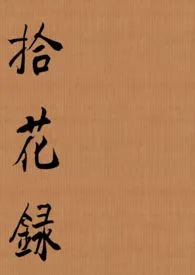 拾花録